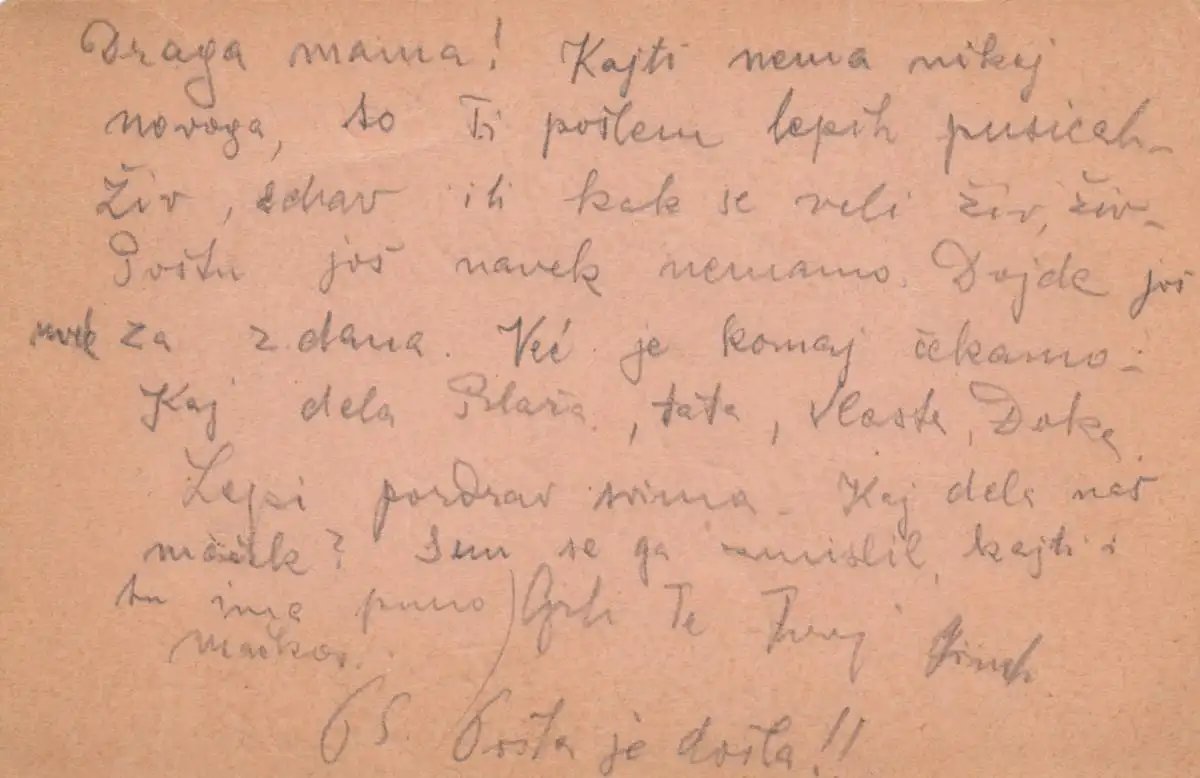 Draga mama! Kajti nema nikaj
novoga, to Ti pošlem lepih pusicah.
Živ, zdrav ili kak se veli živ, živ.
Poštu još navek nemamo. Dojde još
za 2 dana. Već je komaj čekamo.
Kaj dela, tata, Vlasta, Đoka
Lepi pozdrav svima. Kaj dela naš
maček? Sem se ga zmislil, kajti i
tu ima puno
mačkov.
Grli Te Tvoj
PS. Pošta je došla!!